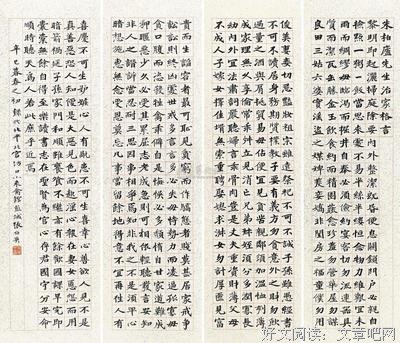 朱柏廬先生治家格言
黎明即起灑掃庭除要內外整潔既昏便息關鎖門戶必親自
檢點一粥一飯當思來處不易半絲半縷恆念物力維艱宜未
雨而綢繆毋臨渴而掘井自奉必須儉約宴客切勿流連器具
質而潔瓦缶勝金玉飲食約而精園蔬愈珍饈勿營華屋勿謀
良田三姑六婆實淫盜之媒婢美妾嬌非閨房之福童僕勿用
俊美妻妾切忌艷妝祖宗雖遠祭祀不可不誠子孫雖愚經書
不可不讀居身務期質樸教子要有義方勿貪意外之財勿飲
過量之酒與肩挑貿易毋佔便宜見貧苦親鄰須加溫恤刻薄
成家理無久享倫常乖舛立見消亡兄弟叔姪須分多潤寡長
幼內外宜法肅辭嚴聽婦言乖骨肉豈是丈夫重資財薄父母
不成人子嫁女擇佳婿毋索重聘娶媳求淑女勿計厚奩見富
貴而生諂容者最可恥見貧窮而作驕態者賤莫甚居家戒爭
訟訟則終凶處世戒多言言多必失毋恃勢力而凌逼孤寡毋
貪口腹而恣殺牲禽乖僻自是悔誤必多頹惰自甘家道難成
狎暱惡少久必受其累屈志老成急則可相依輕聽發言安知
非人之譖訴當忍耐三思因事相爭焉知非我之不是須平心
暗想施惠無念受恩莫忘凡事當留餘地得意不宜再往人有
喜慶不可生妒嫉心人有禍患不可生喜幸心善欲人見不是
真善惡恐人知便是大惡見色而起淫心報在妻女匿怨而用
暗箭禍延子孫家門和順雖饔飧不繼亦有餘歡國課早完即
囊橐無餘自得至樂讀書志在聖賢為官心存君國守分安命
順時聽天為人若此庶乎近焉
辛巳暮春之初
好文阅读：文章吧网